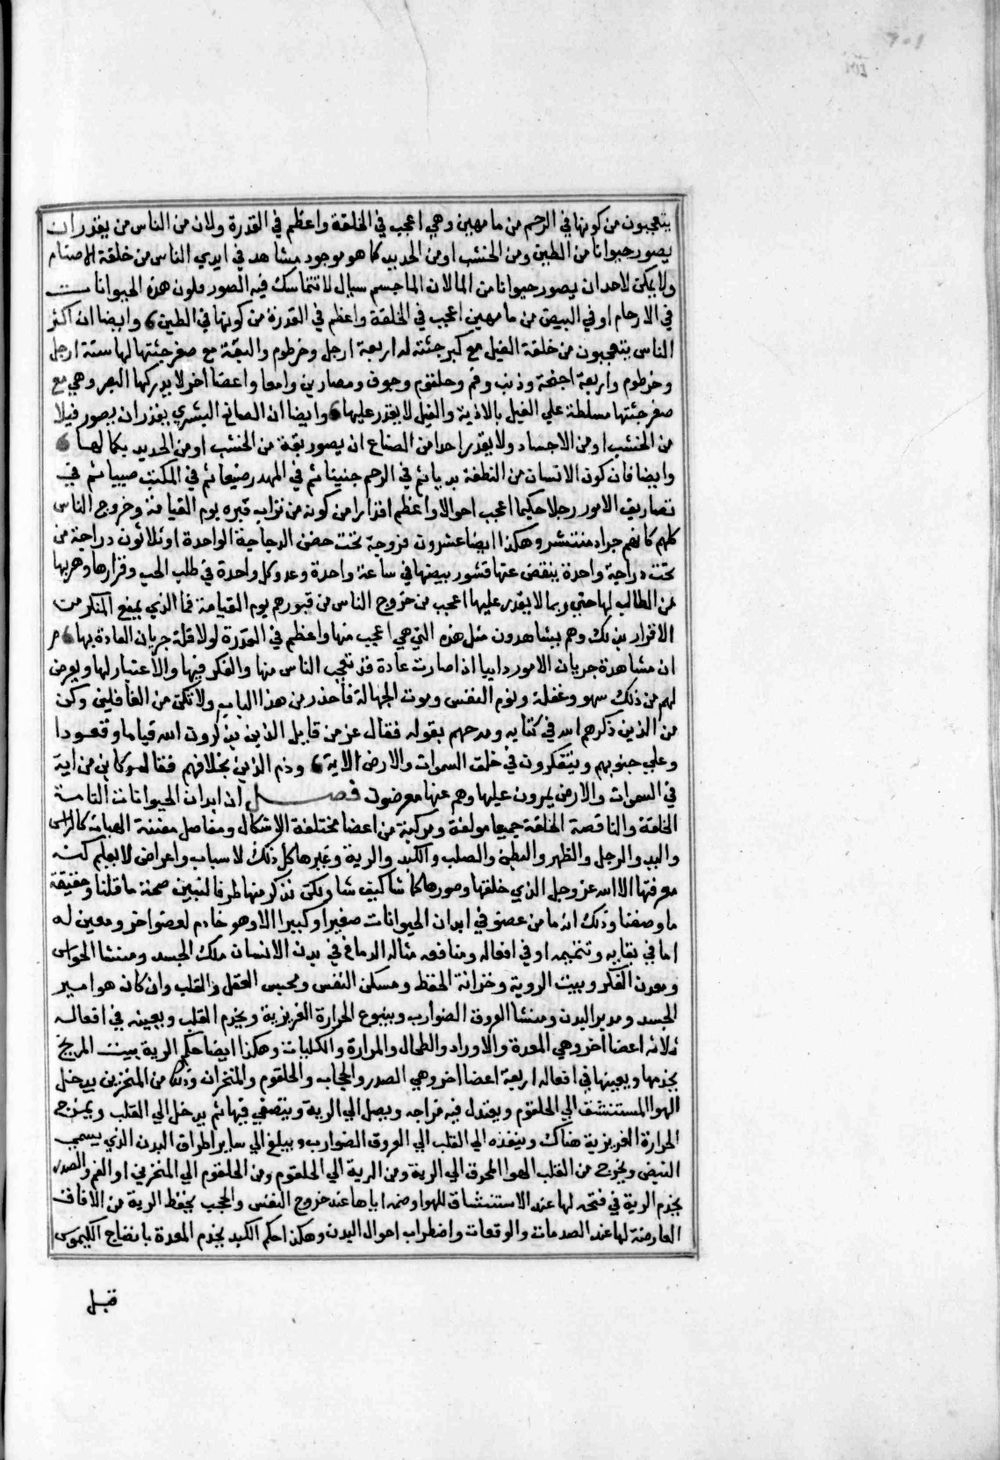 يتعجبون من كونها في الرحم من ما مهين وهي اعجب في الخلقة واعظم في القدرة ولان من الناس من يقدر ان
يصور حيوانا من الطين ومن الخشب او من الحديد كما هو موجود مشاهد في ايدي الناس من خلقة الاصنام
ولا يمكن لاحد ان يصور حيوانا من الما لان الما جسم سيال لا تتماسك فيه الصور فكون هذه الحيوانات
في الارحام او في البيض من ما مهين اعجب في الخلقة واعظم في القدرة من كونها في الطين وايضا ان اكثر
الناس يتعجبون من خلقة الفيل مع كبر جثته له اربعة ارجل وخرطوم والبقة مع صغر جثتها لها ستة ارجل
وخرطوم واربعة اجنحة وذنب وفم وحلقوم وجوف ومصارين وامعا واعضا اخر لا يدركها البصر وهي مع
صغر جثتها مسلطة علي الفيل بالاذية والفيل لا يقدر عليها وايضا ان الصانع البشري يقدر ان يصور فيلا
من الخشب او من الاجساد ولا يقدر احد من الصناع ان يصور بقة من الخشب او من الحديد بكمالها
وايضا فان كون الانسان من النطفة بديا ثم في الرحم جنينا ثم في المهد رضيعا ثم في المكتب صبيا ثم في
تصاريف الامور رجلا حكيما اعجب احوالا واعظم اقتدارا من كونه من تراب قبره يوم القيامة وخروج الناس
كلهم كانهم جراد منتشر وهكذا ايضا عشرون فروجة تحت حضن الدجاجة الواحدة او ثلاثون دراجة من
تحت دراجة واحدة ينقض عنها قشور بيضها في ساعة واحدة وعدو كل واحدة في طلب الحب وفرارها وهربها
من الطالب لها حتي ربما لا يقدر عليها اعجب من خروج الناس من قبورهم يوم القيامة فما الذي يمنع المنكر من
الاقرار بذلك وهم يشاهدون مثل هذه التي هي اعجب منها واعظم في القدرة لولا قلة جريان العادة بها
ان مشاهدة جريان الامور دايبا اذا صارت عادة قل تعجب الناس منها والفكر فيها والاعتبار لها ويعرض
لهم من ذلك سهو وغفلة ونوم النفس وموت الجهالة فاحذر من هذا الباب ولا تكن من الغافلين وكن
من الذين ذكرهم الله في كتابه ومدحهم بقوله فقال عز من قايل الذين يذكرون الله قياما وقعودا
وعلي جنوبهم ويتفكرون في خلق السموات والارض الاية وذم الذين بخلافهم فقال وكاين من اية
في السموات والارض يمرون عليها وهم عنها معرضون فصل ان ابدان الحيوانات التامة
الخلقة والناقصة الخلقة جميعا مولفة ومركبة من اعضا مختلفة الاشكال ومفاصل مفننة الهيات كالراس
واليد والرجل والظهر والبطن والصلب والكبد والرية وغيرها كل ذلك لاسباب واعراض لا يعلم كنه
معرفتها الا الله عز وجل الذي خلقها وصورها كما شا كيف شا ولكن نذكر منها طرفا لتبين صحة ما قلنا وحقيقة
ما وصفنا وذلك انه ما من عضو في ابدان الحيوانات صغيرا وكبيرا الا وهو خادم لعضو اخر ومعين له
اما في بقايه وتتميمه او في افعاله ومنافعه مثاله الدماغ في بدن الانسان ملك الجسد ومنشا الحواس
ومعدن الفكر وبيت الروية وخزانة الحفظ ومسكن النفس ومجلس العقل والقلب وان كان هو امير
الجسد ومدبر البدن ومنشا العروق الضوارب وينبوع الحرارة الغريزية ويخدم القلب ويعينه في افعاله
ثلاثة اعضا اخر وهي المعدة والاوراد والطحال والمرارة والكليات وهكذا ايضا حكم الرية بيت الريح
يخدمها ويعينها في افعاله اربعة اعضا اخر وهي الصدر والحجاب والحلقوم والمنخران وذلك من المنخرين يدخل
الهوا المستنشق الي الحلقوم ويعتدل فيه مزاجه ويصل الي الرية ويتصفي فيها ثم يدخل الي القلب ويمزج
الحرارة الغريزية هناك وينفذه الي القلب الي العروق الضوارب ويبلغ الي ساير اطراف البدن الذي يسمي
النبض ويخرج من القلب الهوا المحرق الي الرية ومن الرية الي الحلقوم ومن الحلقوم الي المنخرين او الفم والصدر
يخدم الرية في فتحه لها عند الاستنشاق للهوا وضمه اياها عند خروج النفس والحجب يحفظ الرية من الافات
العارضة لها عند الصدمات والوقعات واضطراب احوال البدن وهكذا حكم الكبد يخدم المعدة بانضاج الكيموس
قبل